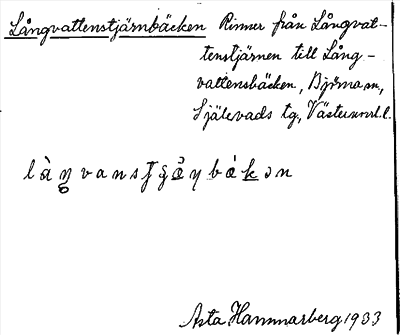 Långvattenstjärnbäcken Rinner från Långvat-
tenstjärnen till Lång-
vattensbäcken, Björna sn,
Själevads tg, Västernorrl. l.
Asta Hammarberg 1933